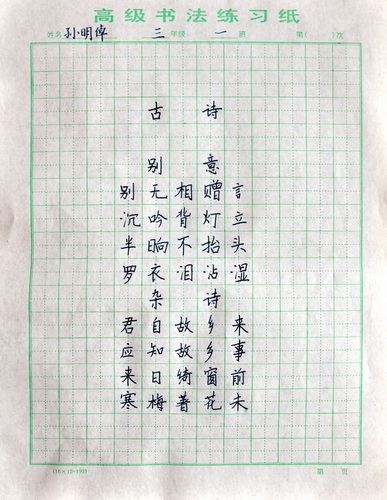 高级书法练习纸
姓名 孙明倬 三 年级 一 班 第( )次
古 诗
别 意
别无相赠言
沉吟背灯立
半晌不抬头
罗衣泪沾湿
杂 诗
君自故乡来
应知故乡事
来日绮窗前
寒梅著花未
(16×12=192)
第 页